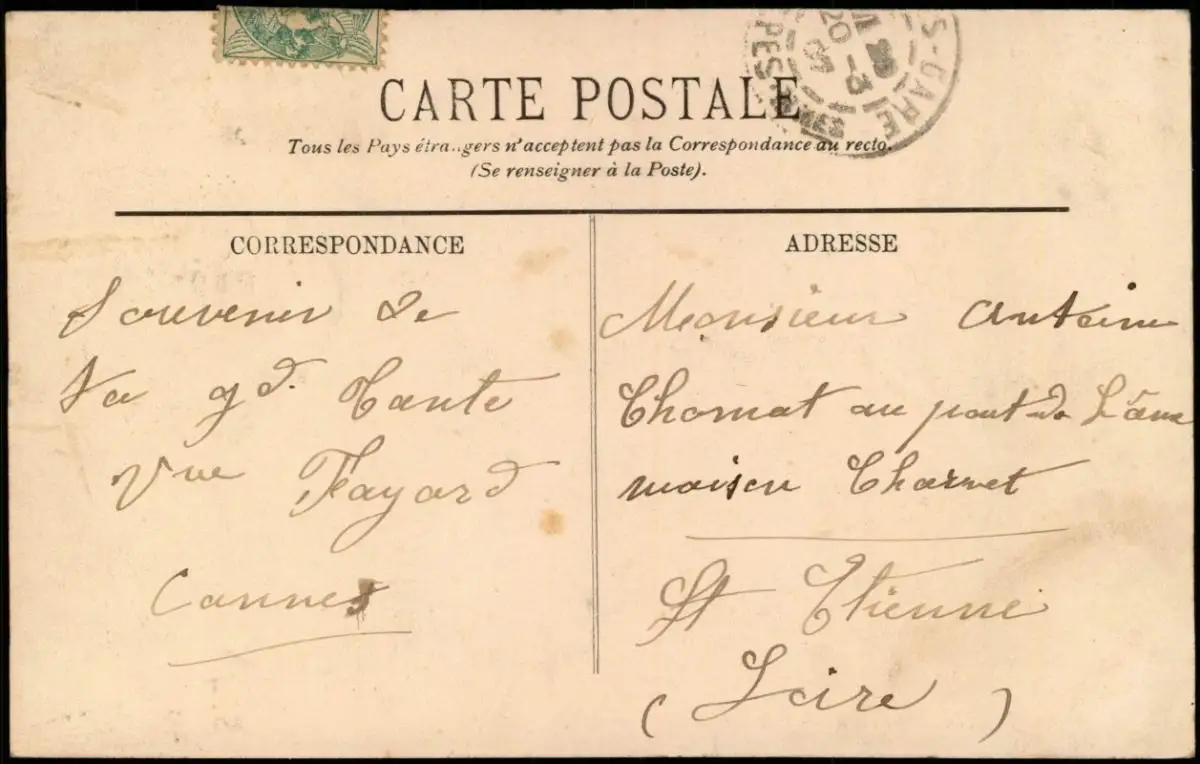 CARTE POSTALE
Tous les Pays étrangers n'acceptent pas la Correspondance au recto.
(Se renseigner à la Poste).
CORRESPONDANCE
Souvenir de
ta gd. Tante
Vve Fayard
Cannes
ADRESSE
Monsieur Antoine
Thomat au pont de L'âne
maison Charvet
St Etienne
(Loire)
S-GARE